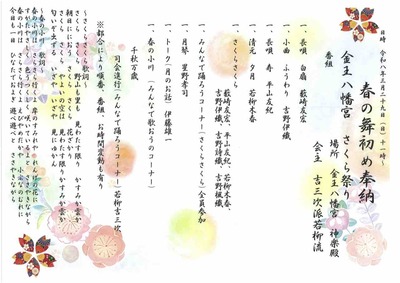 日時 令和八年三月二十九日（日）十一時〜
春の舞初め奉納
金王八幡宮 さくら祭り
場所 金王八幡宮 神楽殿
会主 吉三次派若柳流
番組
一、長唄 白扇 藪崎友宏
一、小曲 ふうわり 吉野伊織
一、長唄 寿 平山友紀
一、清元 夕月 若柳木春
さくらさくら
藪崎友宏、平山友紀、若柳木春、
吉野伊織、吉野詩織、吉野楓織
みんなで踊ろうコーナー（さくらさくら）全員参加
一、月琴 星野孝司
一、トーク（月のお話）伊藤雄一
一、春の小川（みんなで歌おうのコーナー）
千秋万歳
司会進行（みんなで踊ろうコーナー）若柳吉三次
※都合により順番、番組、お時間変動も有り
〜さくら歌詞〜
さくら さくら 野山も里も 見わたす限り かすみか雲か
朝日ににおう さくら さくら 花ざかり
さくら さくら やよいの空は 見わたす限り かすみか雲か
匂いぞ出ずる いざや いざや 見にゆかん
〜春の小川 歌詞〜
春の小川は さらさら行くよ 岸のすみれや れんげの花に
すがたやさしく 色うつくしく 咲けよ咲けよと ささやきながら
春の小川は さらさら行くよ えびやめだかや 小ぶなのむれに
今日も一日 ひなたでおよぎ 遊べ遊べと ささやきながら